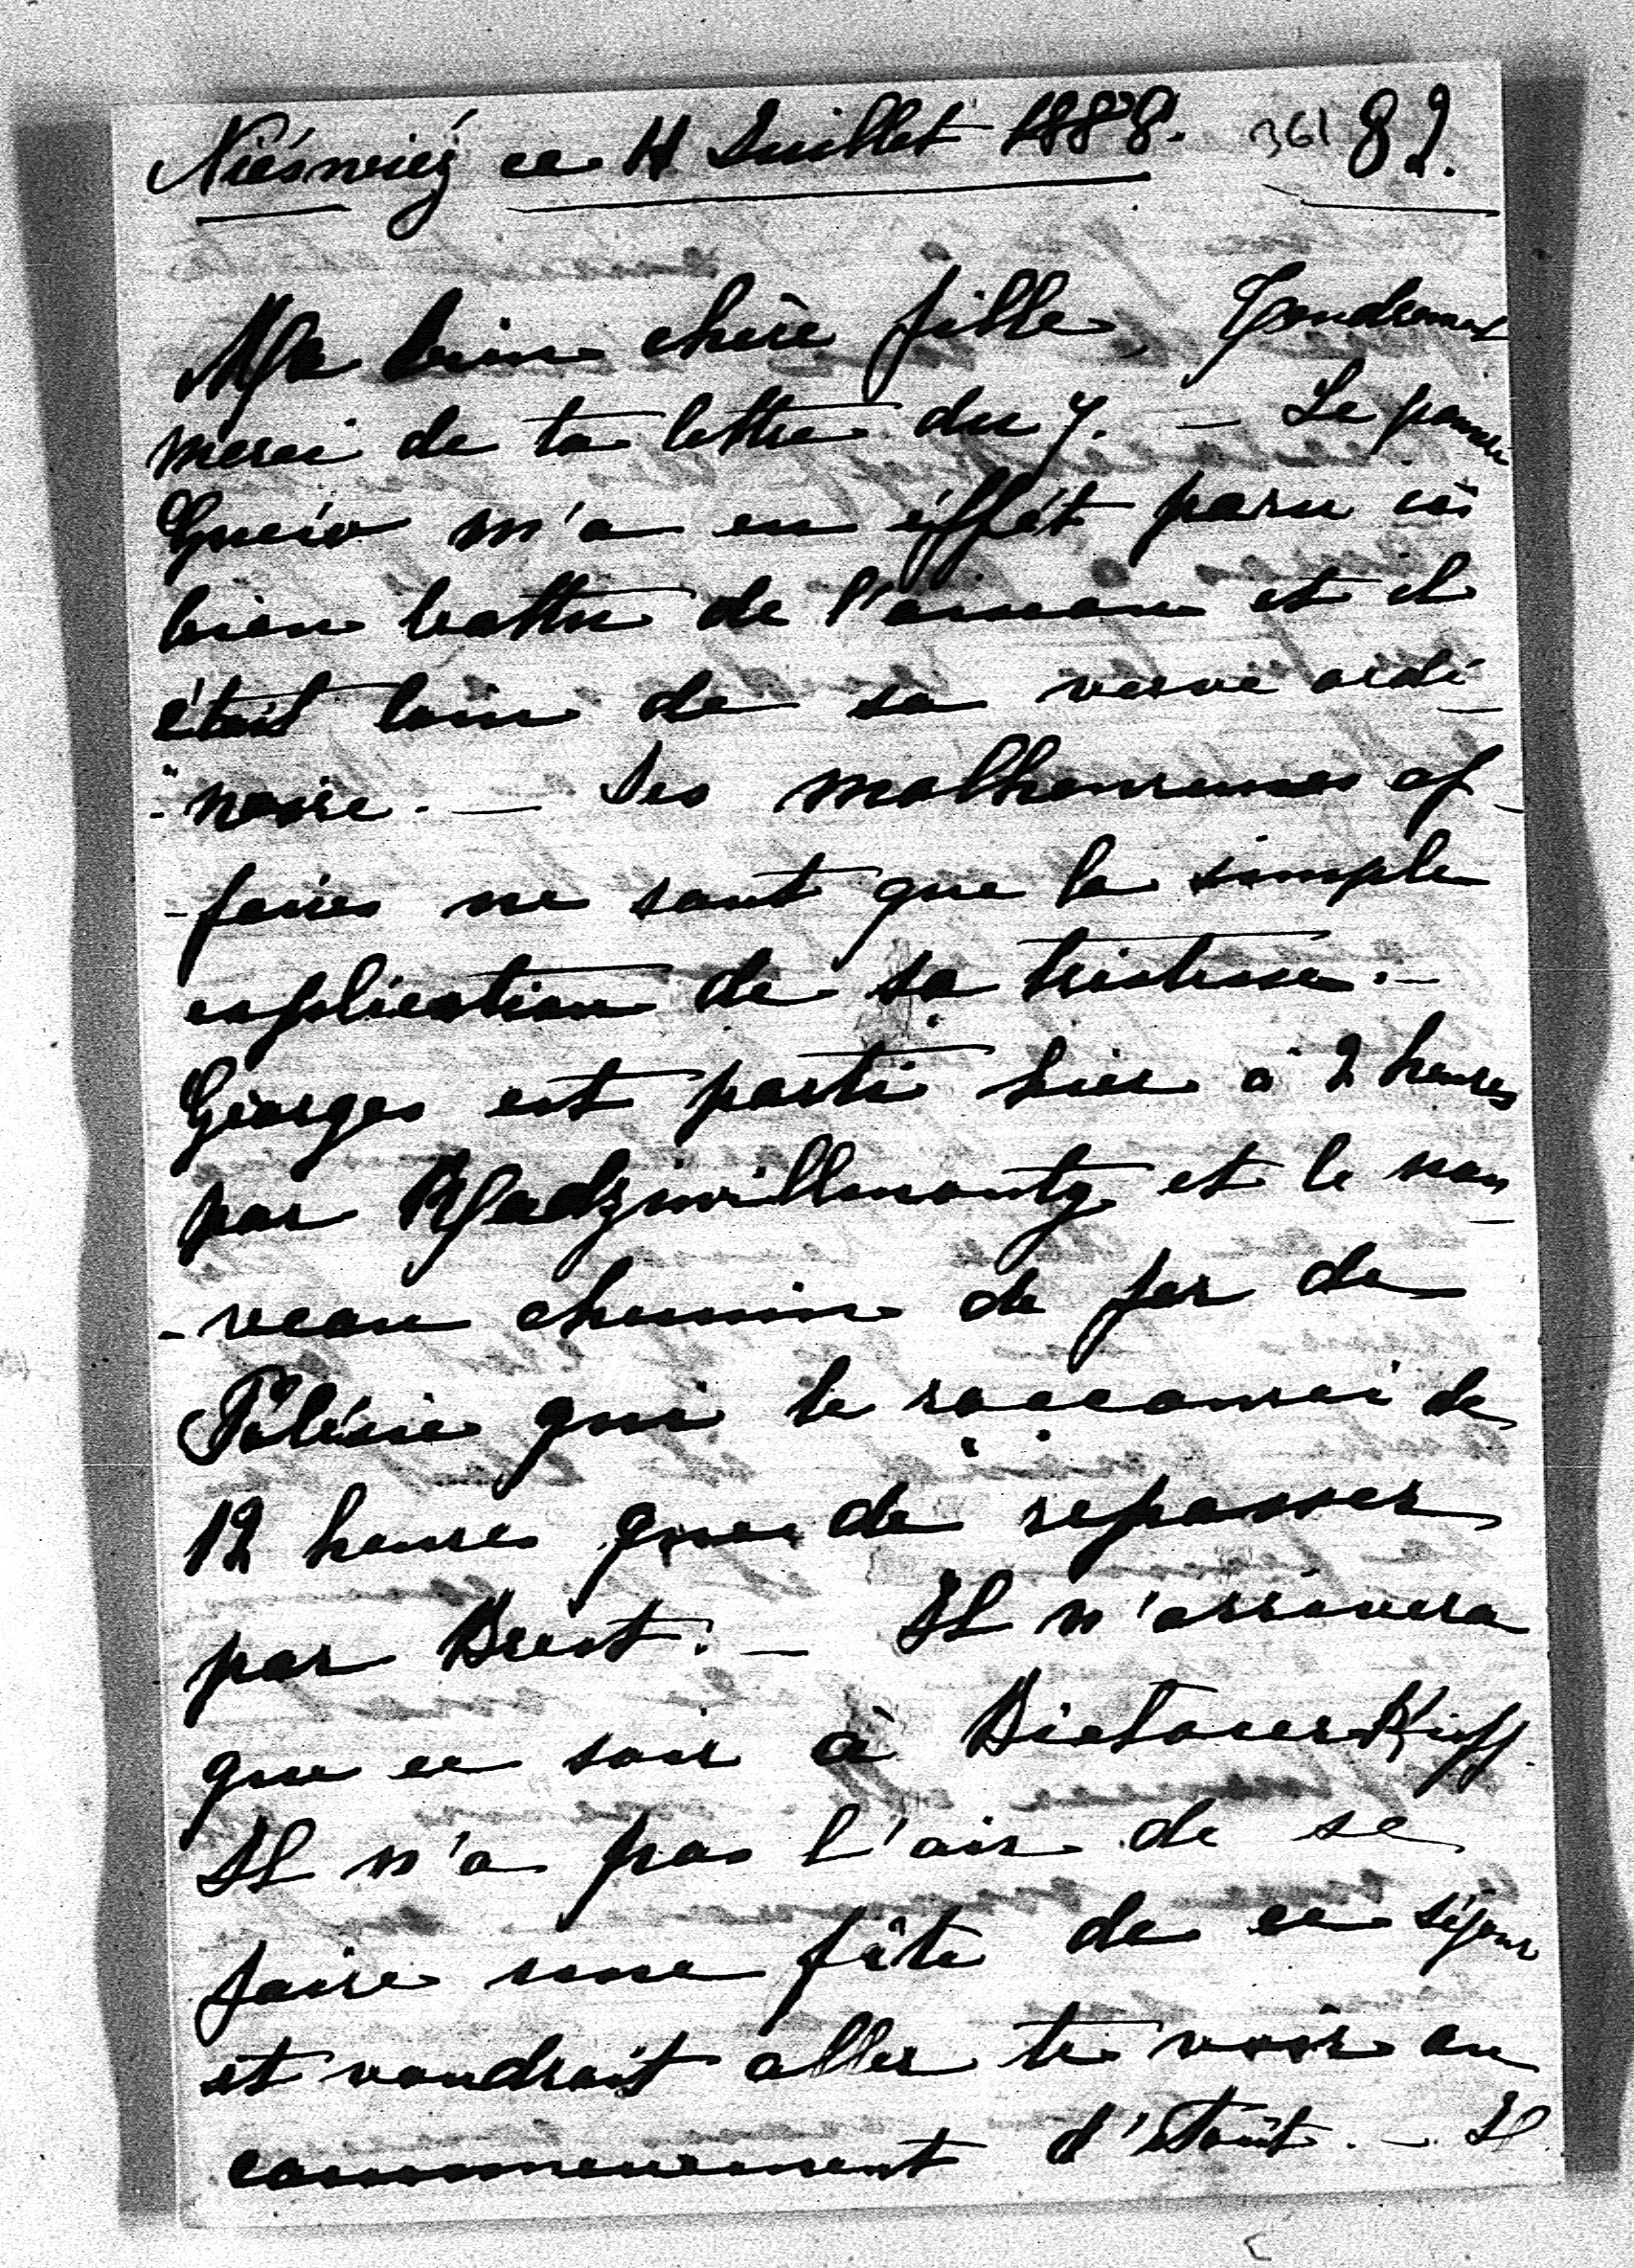 Nieświeź ce 11 Juillet 1888. 361 82.
Ma bien chère fille, Tendrement
merci de ta lettre du 7. — Le pauvre
m'a en éffét paru ici
bien battu de l'oiseau et il
était loin de sa verve ordi-
-naire. — Ses malheureuses af-
-faires ne sont que la simple
explication de sa tristesse. —
Georges est parti hier à 2 heures
par Radziwillmonty et le nou-
-veau chemin de fer de
Polésie qui le raccourci de
12 heures que de repasser
par Brest. — Il n'arrivera
que ce soir à
Il n'a pas l'air de se
faire une fête de ce séjour
et voudrait aller te voir au
commencement d'Août. — Il